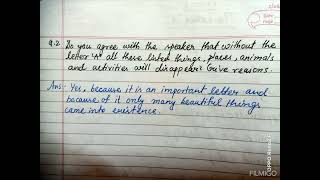 Q.2. Do you agree with the speaker that without the
letter 'A' all these listed things, places, animals
and activities will disappear? Give reasons.
Ans- Yes, because it is an important letter and
because of it only many beautiful things
came into existence.
FILMIGO